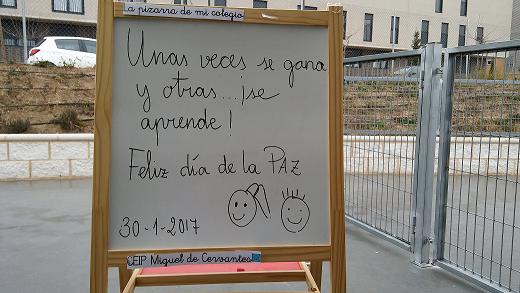 La pizarra de mi colegio
Unas veces se gana
y otras... ¡se
aprende!
Feliz día de la PAZ
30-1-2017
CEIP Miguel de Cervantes